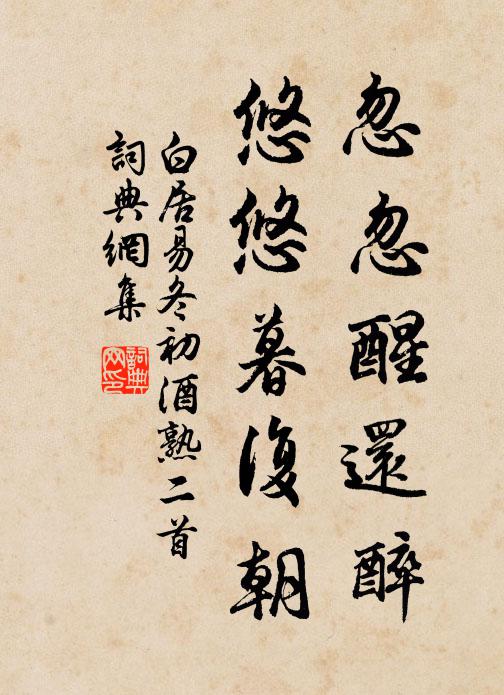 忽忽醒還醉
悠悠暮復朝
白居易冬初酒熟二首
詞典網集
詞典網印